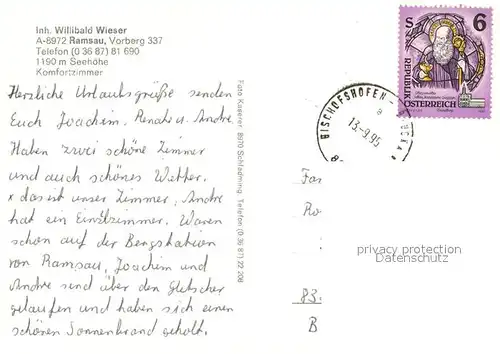 Inh. Willibald Wieser
A-8972 Ramsau, Vorberg 337
Telefon (0 36 87) 81 690
1190 m Seehöhe
Komfortzimmer
Herzliche Urlaubsgrüße senden
Euch Joachim, Renate u. Andre.
Haben zwei schöne Zimmer
und auch schönes Wetter.
x das ist unser Zimmer, Andre
hat ein Einzelzimmer. Waren
schon auf der Bergstation
von Ramsau, Joachim und
Andre sind über den Gletscher
gelaufen und haben sich einen
schönen Sonnenbrand geholt.
Foto Kaserer, 8970 Schladming, Telefon (0 36 87) 22 206
S 6
REPUBLIK
ÖSTERREICH
BISCHOFSHOFEN -
a
13.-9.95
8
Fam
Ro
83
B
watermark protection
AnsichtskartenCenter